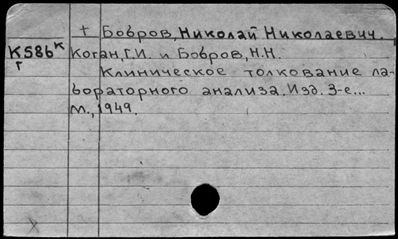 + Бобров, Николай Николаевич.
К586к Коган, Г.И. и Бобров, Н.Н.
г Клиническое толкование ла-
бораторного анализа. Изд. 3-е...
М., 1949.
x